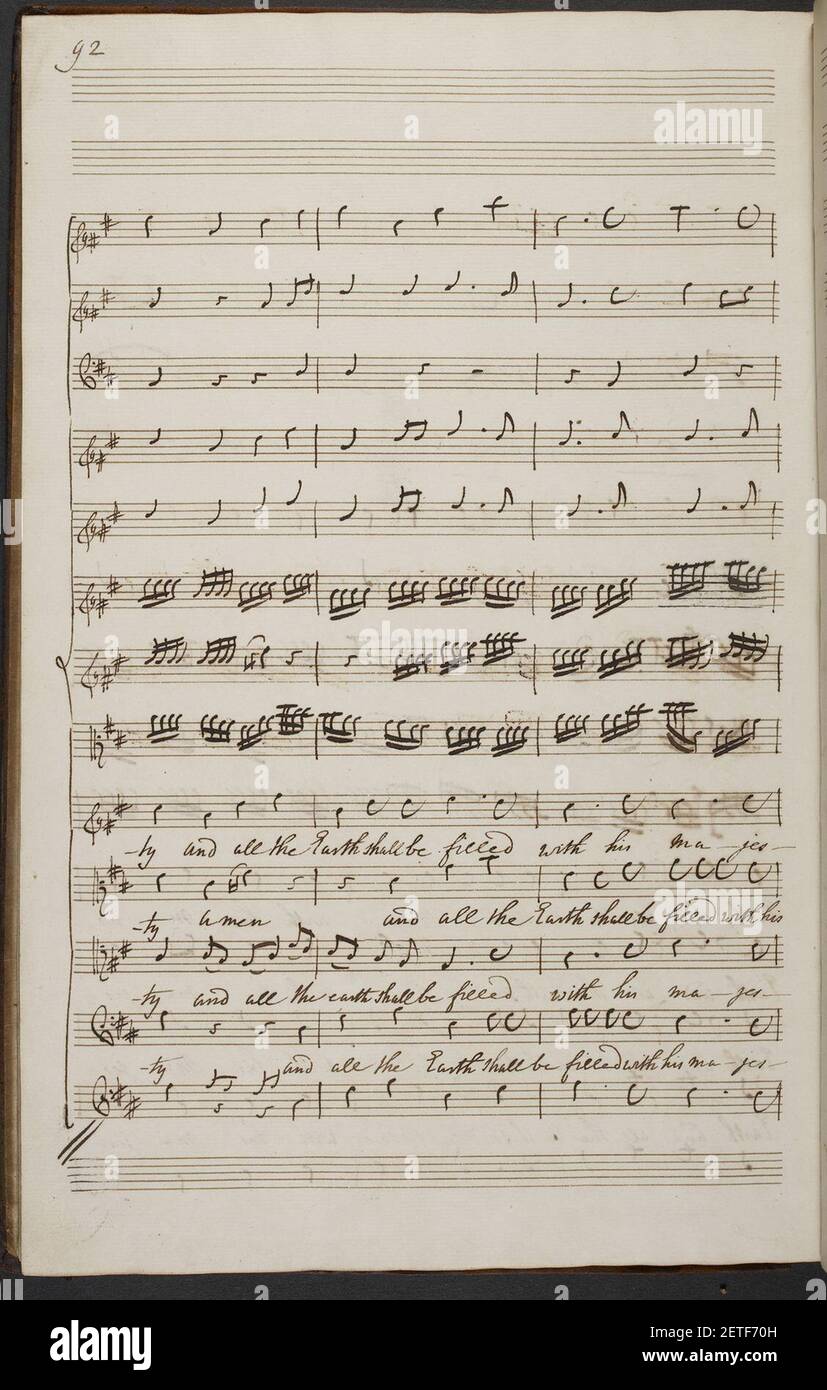 92
-ty and all the Earth shall be filled with his ma-jes-
-ty amen and all the Earth shall be filled with his
-ty and all the earth shall be filled with his ma-jes-
-ty and all the Earth shall be filled with his ma-jes-
alamy
alamy
alamy
alamy
Image ID: 2ETF70H
www.alamy.com